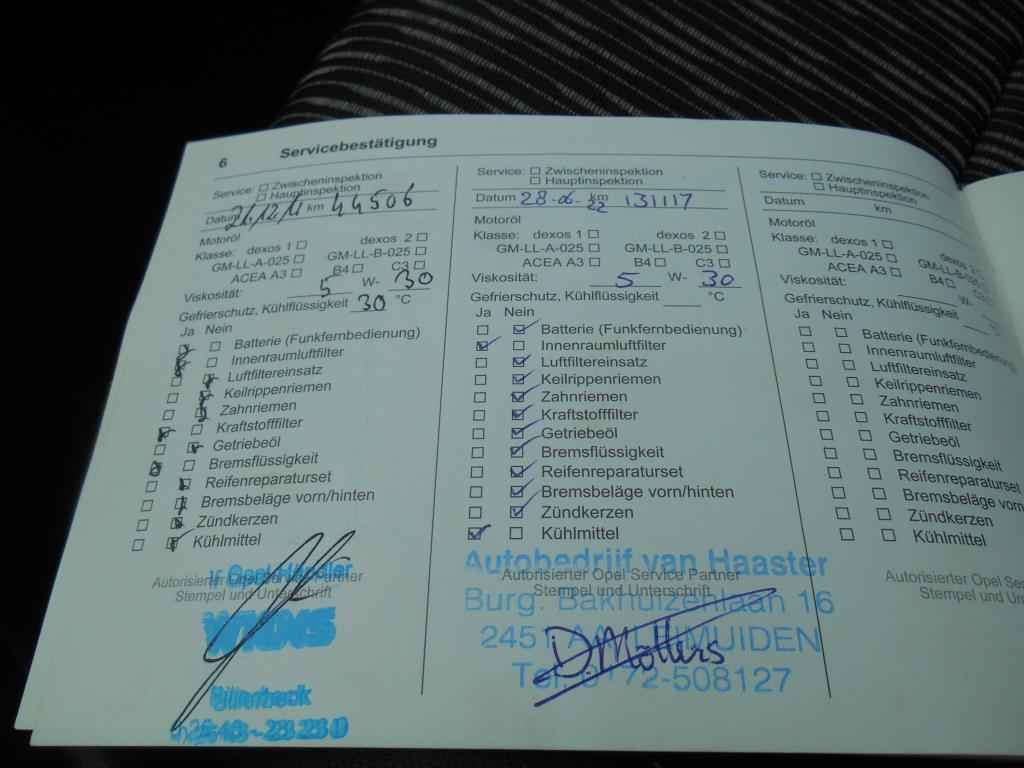 6 Servicebestätigung
Service: Zwischeninspektion
Hauptinspektion
Datum km 44506
Motoröl
Klasse: dexos 1 dexos 2
GM-LL-A-025 GM-LL-B-025
ACEA A3 B4 C3
Viskosität: 5 W- 30
Gefrierschutz, Kühlflüssigkeit 30 °C
Ja Nein
Batterie (Funkfernbedienung)
Innenraumluftfilter
Luftfiltereinsatz
Keilrippenriemen
Zahnriemen
Kraftstofffilter
Getriebeöl
Bremsflüssigkeit
Reifenreparaturset
Bremsbeläge vorn/hinten
Zündkerzen
Kühlmittel
Opel Händler
Autorisierter Opel Service Partner
Stempel und Unterschrift
Billerbeck
Service: Zwischeninspektion
Hauptinspektion
Datum 28-06- km 131117
Motoröl
Klasse: dexos 1 dexos 2
GM-LL-A-025 GM-LL-B-025
ACEA A3 B4 C3
Viskosität: 5 W- 30
Gefrierschutz, Kühlflüssigkeit °C
Ja Nein
Batterie (Funkfernbedienung)
Innenraumluftfilter
Luftfiltereinsatz
Keilrippenriemen
Zahnriemen
Kraftstofffilter
Getriebeöl
Bremsflüssigkeit
Reifenreparaturset
Bremsbeläge vorn/hinten
Zündkerzen
Kühlmittel
Autobedrijf van Haaster
Autorisierter Opel Service Partner
Stempel und Unterschrift
Burg. Bakhuizenlaan 16
2451 AA LEIMUIDEN
D. Mollers
Tel. 0172-508127
Service: Zwischeninspektion
Hauptinspektion
Datum km
Motoröl
Klasse: dexos 1 dexos 2
GM-LL-A-025 GM-LL-B-025
ACEA A3 B4 C3
Viskosität: W-
Gefrierschutz, Kühlflüssigkeit
Ja Nein
Batterie (Funkfernbedienung)
Innenraumluftfilter
Luftfiltereinsatz
Keilrippenriemen
Zahnriemen
Kraftstofffilter
Getriebeöl
Bremsflüssigkeit
Reifenreparaturset
Bremsbeläge vorn
Zündkerzen
Kühlmittel
Autorisierter Opel
Stempel und